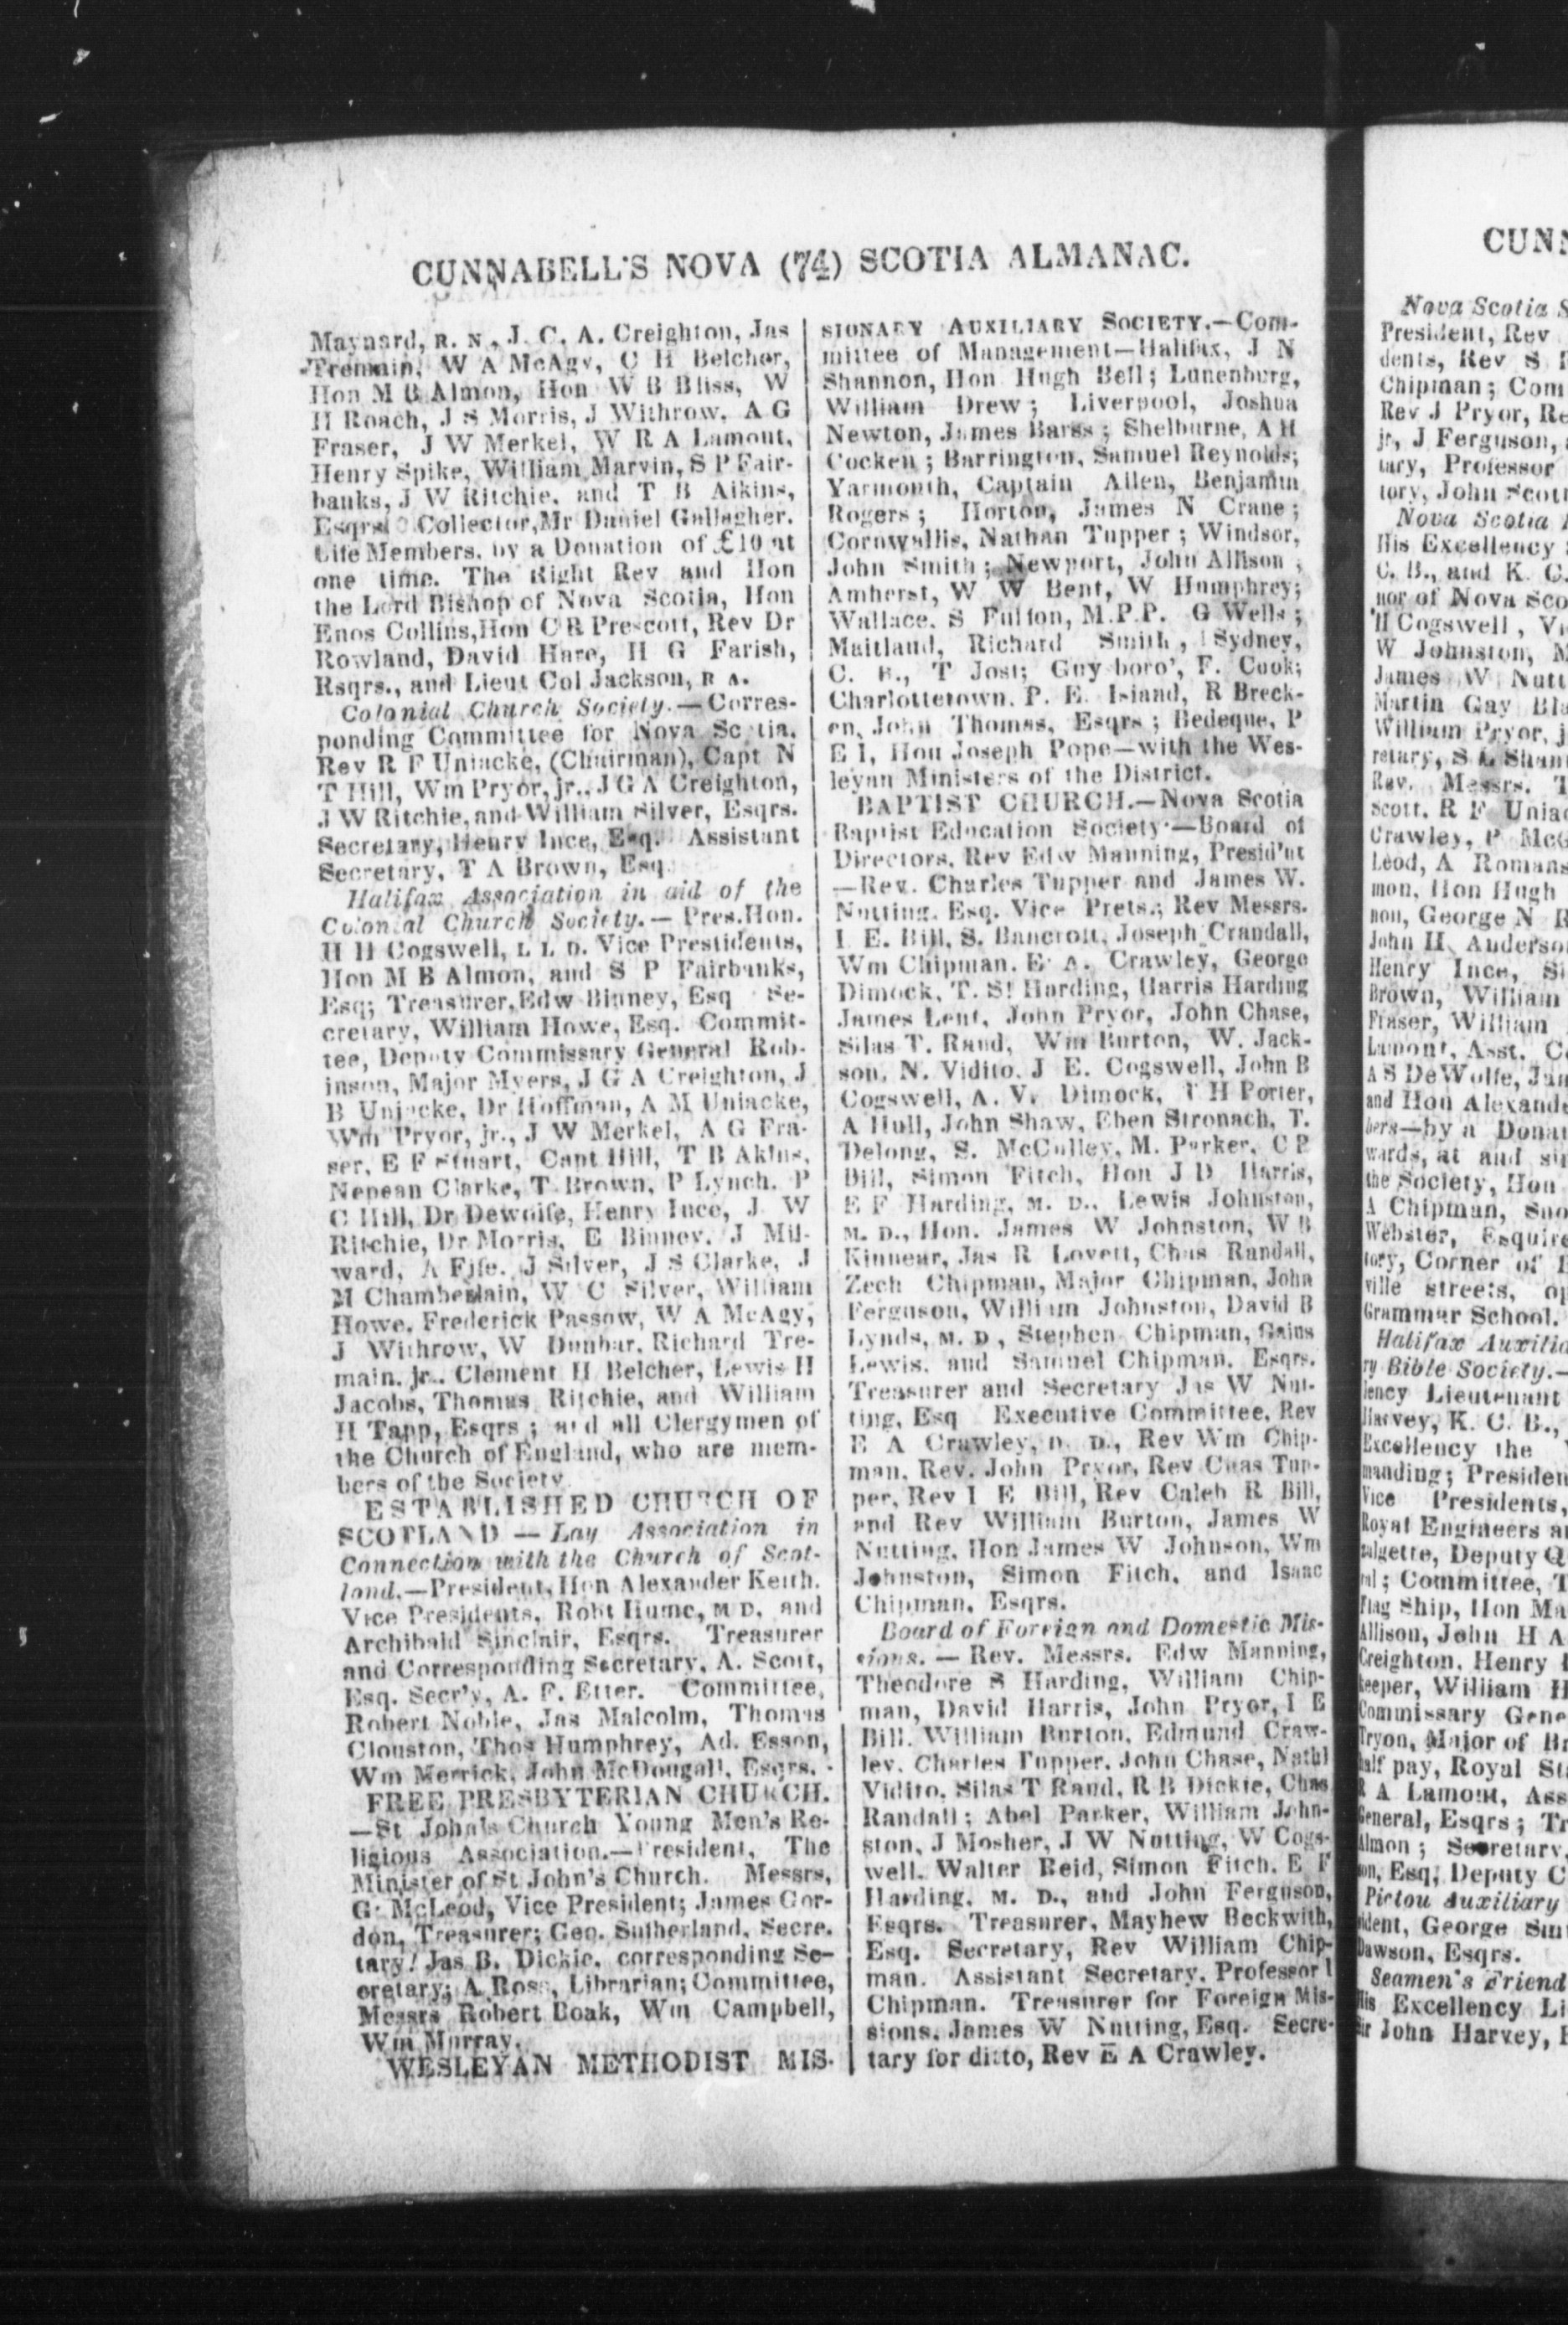 CUNNABELL'S NOVA (74) SCOTIA ALMANAC.
Maynard, R. N., J. C. A. Creighton, Jas
Tremain, W A McAgy, C H Belcher,
Hon M B Almon, Hon W B Bliss, W
H Roach, J S Morris, J Withrow, A G
Fraser, J W Merkel, W R A Lamont,
Henry Spike, William Marvin, S P Fair-
banks, J W Ritchie, and T B Aikins,
Esqrs. Collector, Mr Daniel Gallagher.
Life Members, by a Donation of £10 at
one time. The Right Rev and Hon
the Lord Bishop of Nova Scotia, Hon
Enos Collins, Hon C R Prescott, Rev Dr
Rowland, David Hare, H G Farish,
Rsqrs., and Lieut Col Jackson, R A.
Colonial Church Society.—Corres-
ponding Committee for Nova Scotia.
Rev R F Uniacke, (Chairman), Capt N
T Hill, Wm Pryor, jr., J G A Creighton,
J W Ritchie, and William Silver, Esqrs.
Secretary, Henry Ince, Esq. Assistant
Secretary, T A Brown, Esq.
Halifax Association in aid of the
Colonial Church Society.— Pres. Hon.
H H Cogswell, L L D. Vice Prestidents,
Hon M B Almon, and S P Fairbanks,
Esq; Treasurer, Edw Binney, Esq Se-
cretary, William Howe, Esq. Commit-
tee, Deputy Commissary General Rob-
inson, Major Myers, J G A Creighton, J
B Uniacke, Dr Hoffman, A M Uniacke,
Wm Pryor, jr., J W Merkel, A G Fra-
ser, E F Stuart, Capt Hill, T B Akins,
Nepean Clarke, T Brown, P Lynch, P
C Hill, Dr Dewolfe, Henry Ince, J W
Ritchie, Dr Morris, E Binney, J Mil-
ward, A Fife, J Silver, J S Clarke, J
H Chamberlain, W C Silver, William
Howe, Frederick Passow, W A McAgy,
J Withrow, W Dunbar, Richard Tre-
main, jr., Clement H Belcher, Lewis H
Jacobs, Thomas Ritchie, and William
H Tapp, Esqrs ; and all Clergymen of
the Church of England, who are mem-
bers of the Society
ESTABLISHED CHURCH OF
SCOTLAND — Lay Association in
Connection with the Church of Scot-
land.—President, Hon Alexander Keith.
Vice Presidents, Robt Hume, M D, and
Archibald Sinclair, Esqrs. Treasurer
and Corresponding Secretary, A. Scott,
Esq. Secr'y, A. F. Etter. Committee,
Robert Noble, Jas Malcolm, Thomas
Clouston, Thos Humphrey, Ad. Esson,
Wm Merrick, John McDougall, Esqrs.
FREE PRESBYTERIAN CHURCH.
—St John's Church Young Men's Re-
ligious Association.—President, The
Minister of St John's Church. Messrs,
G. McLeod, Vice President; James Gor-
don, Treasurer; Geo. Sutherland, Secre-
tary; Jas B. Dickie, corresponding Se-
cretary; A. Ross, Librarian; Committee,
Messrs Robert Boak, Wm Campbell,
Wm Murray.
WESLEYAN METHODIST MIS-
SIONARY AUXILIARY SOCIETY.—Com-
mittee of Management—Halifax, J N
Shannon, Hon Hugh Bell; Lunenburg,
William Drew; Liverpool, Joshua
Newton, James Barss ; Shelburne, A H
Cocken ; Barrington, Samuel Reynolds;
Yarmouth, Captain Allen, Benjamin
Rogers ; Horton, James N Crane ;
Cornwallis, Nathan Tupper ; Windsor,
John Smith ; Newport, John Allison ;
Amherst, W W Bent, W Humphrey;
Wallace, S Fulton, M.P.P. G Wells ;
Maitland, Richard Smith, Sydney,
C. B., T Jost; Guysboro', F. Cook;
Charlottetown, P. E. Island, R Breck-
en, John Thomas, Esqrs ; Bedeque, P
E I, Hon Joseph Pope—with the Wes-
leyan Ministers of the District.
BAPTIST CHURCH.—Nova Scotia
Baptist Education Society—Board of
Directors, Rev Edw Manning, Presid'nt
—Rev. Charles Tupper and James W.
Nutting, Esq. Vice Prets.; Rev Messrs.
I. E. Bill, S. Bancroft, Joseph Crandall,
Wm Chipman, E. A. Crawley, George
Dimock, T. S. Harding, Harris Harding
James Lent, John Pryor, John Chase,
Silas T. Rand, Wm Burton, W. Jack-
son, N. Vidito, J E. Cogswell, John B
Cogswell, A. V. Dimock, T H Porter,
A Hull, John Shaw, Eben Stronach, T.
Delong, S. McCulley, M. Parker, C P
Bill, Simon Fitch, Hon J D Harris,
E F Harding, M. D., Lewis Johnston,
M. D., Hon. James W Johnston, W B
Kinnear, Jas R Lovett, Chas Randall,
Zech Chipman, Major Chipman, John
Ferguson, William Johnston, David B
Lynds, M. D, Stephen Chipman, Gains
Lewis, and Samuel Chipman, Esqrs.
Treasurer and Secretary Jas W Nut-
ting, Esq Executive Committee, Rev
E A Crawley, D. D., Rev Wm Chip-
man, Rev. John Pryor, Rev Chas Tup-
per, Rev I E Bill, Rev Caleb R Bill,
and Rev William Burton, James W
Nutting, Hon James W Johnson, Wm
Johnston, Simon Fitch, and Isaac
Chipman, Esqrs.
Board of Foreign and Domestic Mis-
sions. — Rev. Messrs. Edw Manning,
Theodore S Harding, William Chip-
man, David Harris, John Pryor, I E
Bill, William Burton, Edmund Craw-
ley, Charles Tupper, John Chase, Nathl
Vidito, Silas T Rand, R B Dickie, Chas
Randall; Abel Parker, William John-
ston, J Mosher, J W Nutting, W Cogs-
well, Walter Reid, Simon Fitch, E F
Harding, M. D., and John Ferguson,
Esqrs. Treasurer, Mayhew Beckwith,
Esq. Secretary, Rev William Chip-
man. Assistant Secretary, Professor I
Chipman. Treasurer for Foreign Mis-
sions, James W Nutting, Esq. Secre-
tary for ditto, Rev E A Crawley.
CUNN
Nova Scotia S
President, Rev
dents, Rev S
Chipman; Com
Rev J Pryor, Re
jr, J Ferguson,
tary, Professor
tory, John Scott
Nova Scotia
His Excellency
C. B., and K. C.
nor of Nova Sco
H Cogswell, Vi
W Johnston, M
James W Nutt
Martin Gay Bla
William Pryor, j
retary, S L Shan
Rev. Messrs. T
Scott, R F Uniac
Crawley, P McG
Leod, A Romans
mon, Hon Hugh
non, George N R
John H Anderso
Henry Ince, Si
Brown, William
Fraser, William
Lamont, Asst. C
A S DeWolfe, Jam
and Hon Alexande
bers—by a Donat
wards, at and su
the Society, Hon
A Chipman, Sno
Webster, Esquire
tory, Corner of B
ville streets, op
Grammar School.
Halifax Auxilia
ry Bible Society.—
lency Lieutenant
Harvey, K. C. B.,
Excellency the
manding; Presiden
Vice Presidents,
Royal Engineers a
algette, Deputy Q
ral; Committee, T
Flag Ship, Hon Ma
Allison, John H A
Creighton, Henry
keeper, William H
Commissary Gene
Tryon, Major of Br
half pay, Royal St
R A Lamont, Ass
General, Esqrs; Tr
Almon; Secretary,
son, Esq, Deputy C
Pictou Auxiliary
sident, George Smi
Dawson, Esqrs.
Seamen's Friend
His Excellency Li
Sir John Harvey,